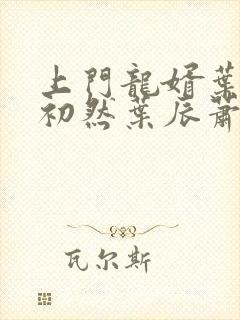 上門龍婿葉
初然葉辰蕭
瓦尔斯